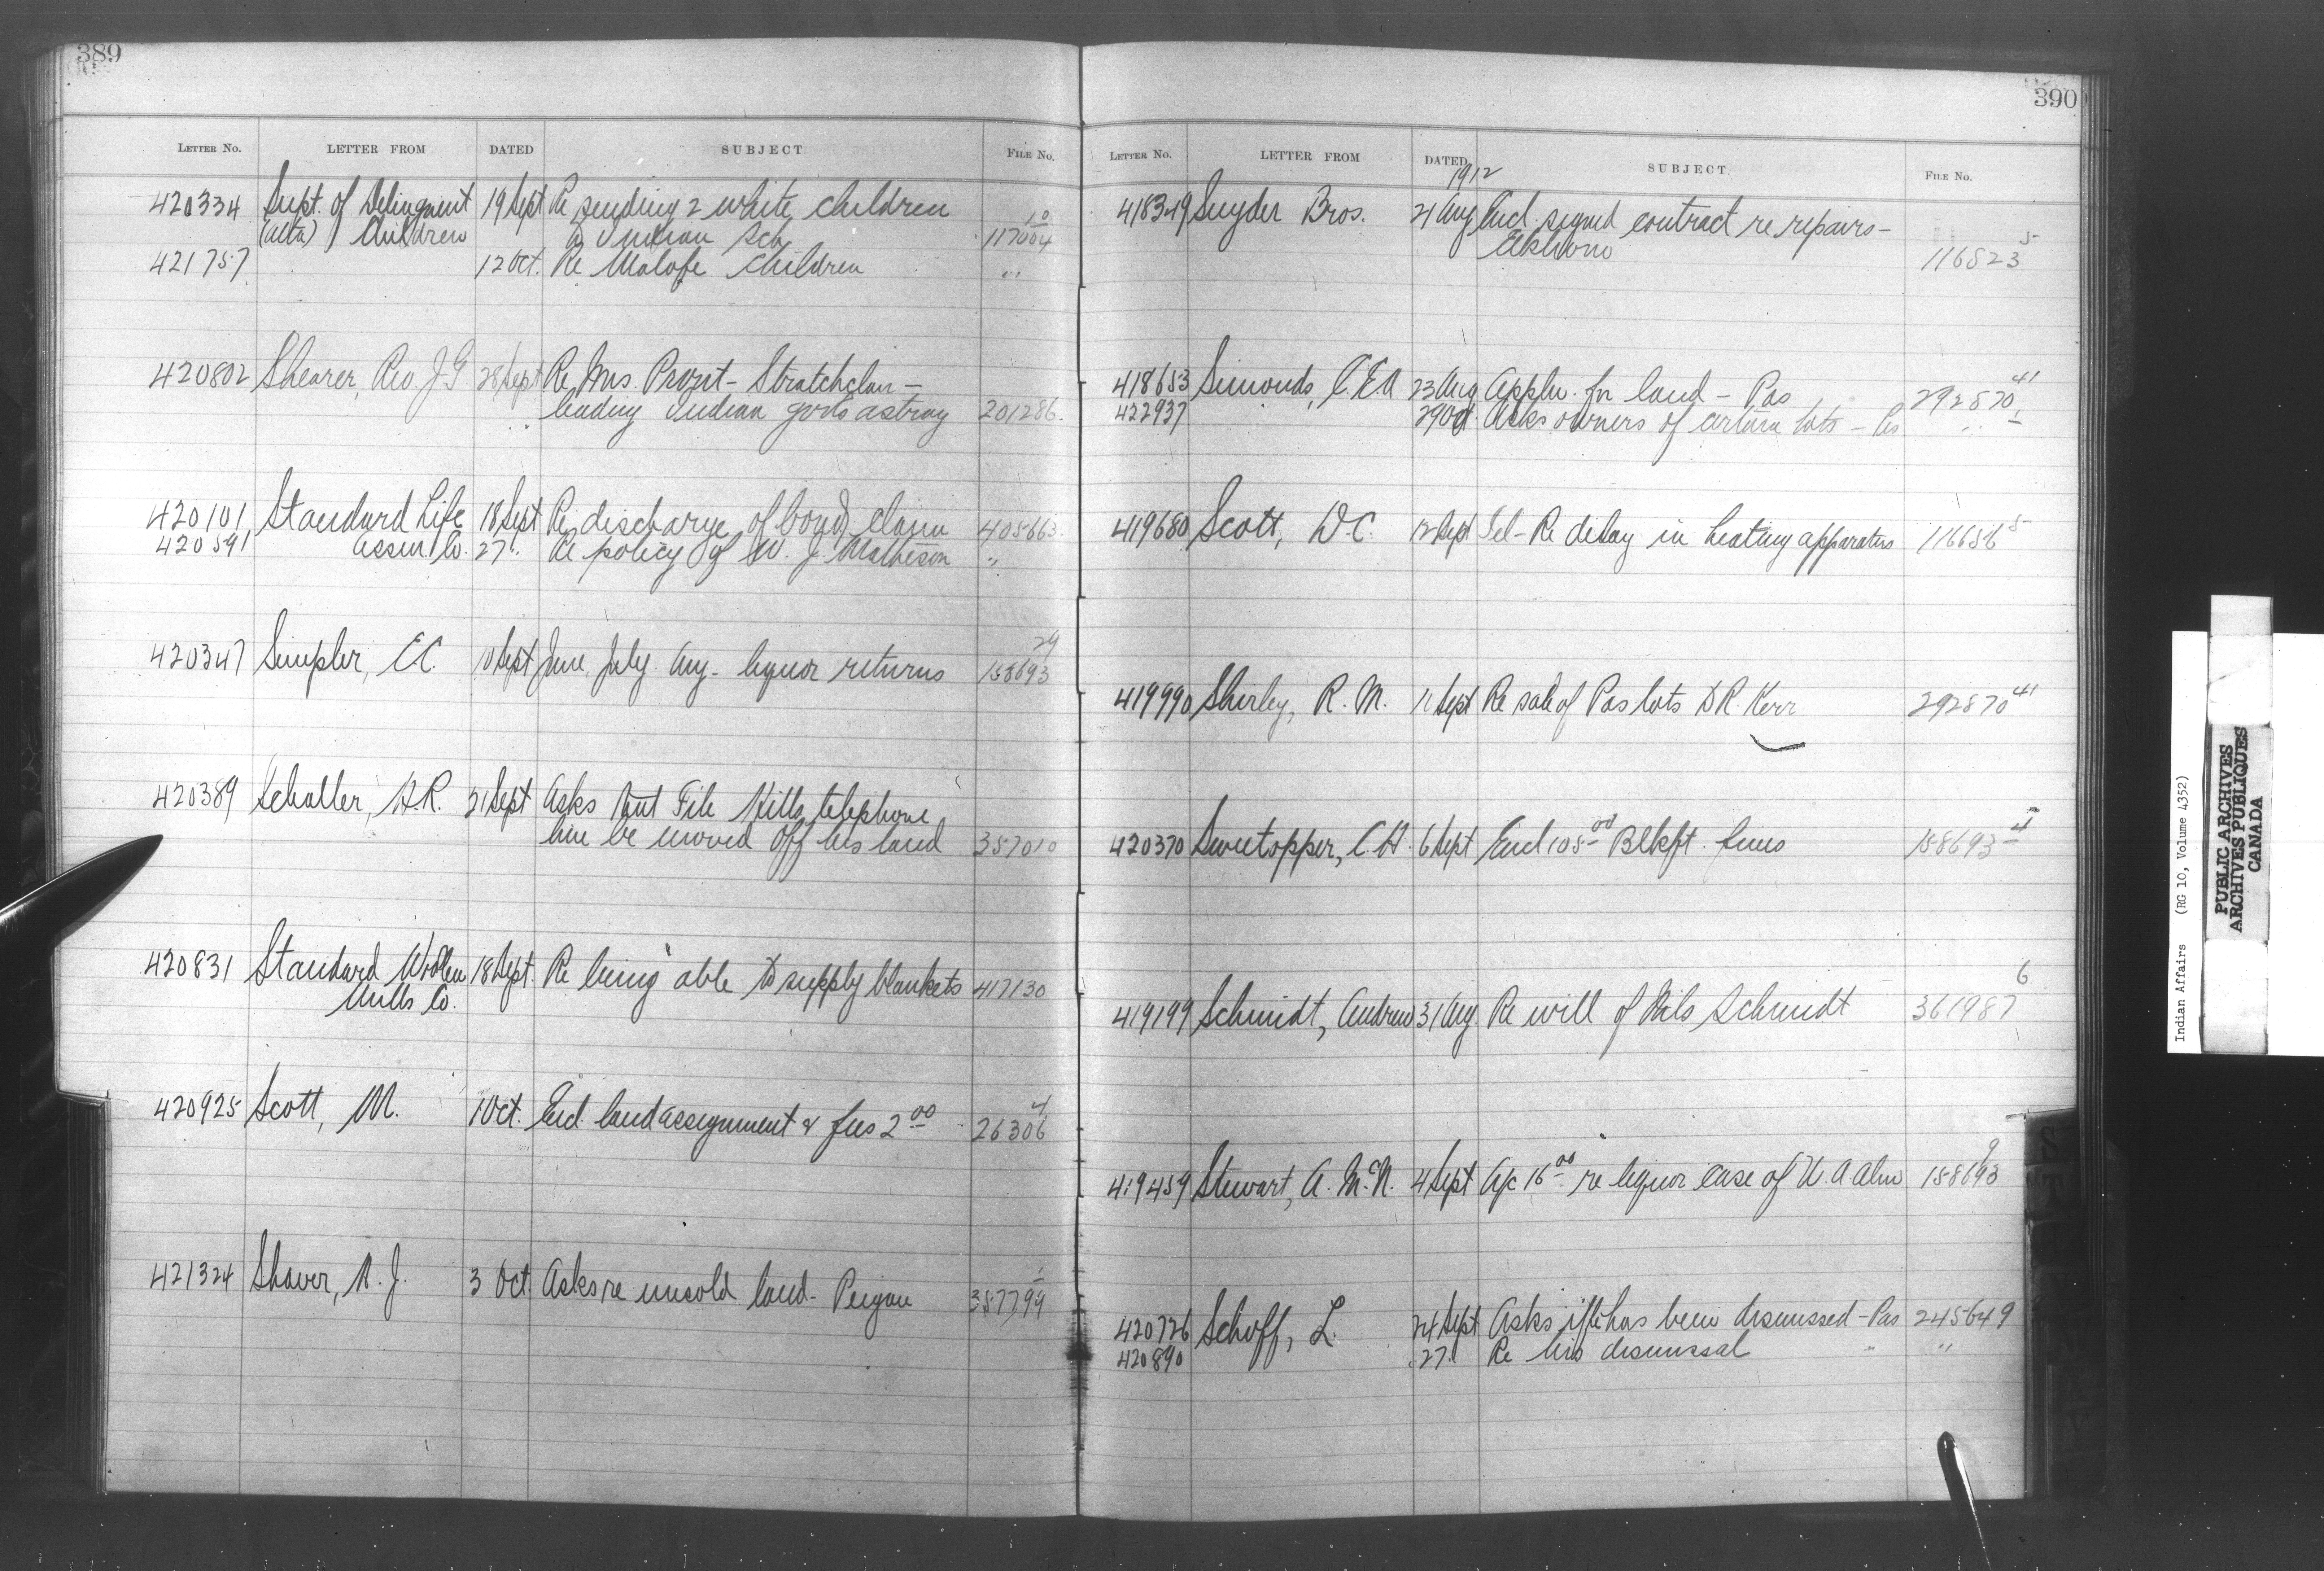 389
LETTER NO. LETTER FROM DATED SUBJECT FILE NO.
420334 Supt. of Delinquent 19 Sept Re sending 2 white children
(Alta) Children to Indian Sch 117004 10
421757 12 Oct. Re Malofe children "
420802 Shearer, Rev. J G 28 Sept Re Mrs. Prozt - Stratchclair -
leading Indian girls astray 201286.
420101 Standard Life 18 Sept Re discharge of bond claim 405663
420591 Assur Co. 27 " Re policy of W. J. Matheson "
420347 Simpler, E C. 10 Sept June, July, Aug - liquor returns 158693 29
420389 Schaller, H R. 21 Sept Asks that File Hills telephone
line be moved off his land 357010
420831 Standard Woolen 18 Sept. Re being able to supply blankets 417130
Mills Co.
420925 Scott, M. 1 Oct. Encl. land assignment & fees 2 00 26306 4
421324 Shaver, A. J. 3 Oct Asks re unsold land - Peigan 357799 1
390
LETTER NO. LETTER FROM DATED SUBJECT FILE NO.
1912
418349 Snyder Bros. 21 Aug Encl. signed contract re repairs -
Elkhorn 116823 5
418653 Simonds, C. E A 23 Aug Appln. for land - Pas 292870 41
422937 29 Oct Asks owners of certain lots - Pas " 1
419680 Scott, D C. 12 Sept Tel - Re delay in heating apparatus 116656 5
419990 Shirley, R. M. 11 Sept Re sale of Pas lots to R. Kerr 292870 41
420370 Sweetapper, C. H. 6 Sept Encl 105 00 Blkft. fines 158693 4
419199 Schmidt, Andrew 31 Aug. Re will of Nils Schmidt 361987 6
419459 Stewart, A. McN. 4 Sept A/c 16 00 re liquor case of W. A Alm 158693 9
420726 Schoff, L. 24 Sept Asks if he has been dismissed - Pas 245649
420890 27 " Re his dismissal " "
Indian Affairs (RG 10, Volume 4352)
PUBLIC ARCHIVES
ARCHIVES PUBLIQUES
CANADA